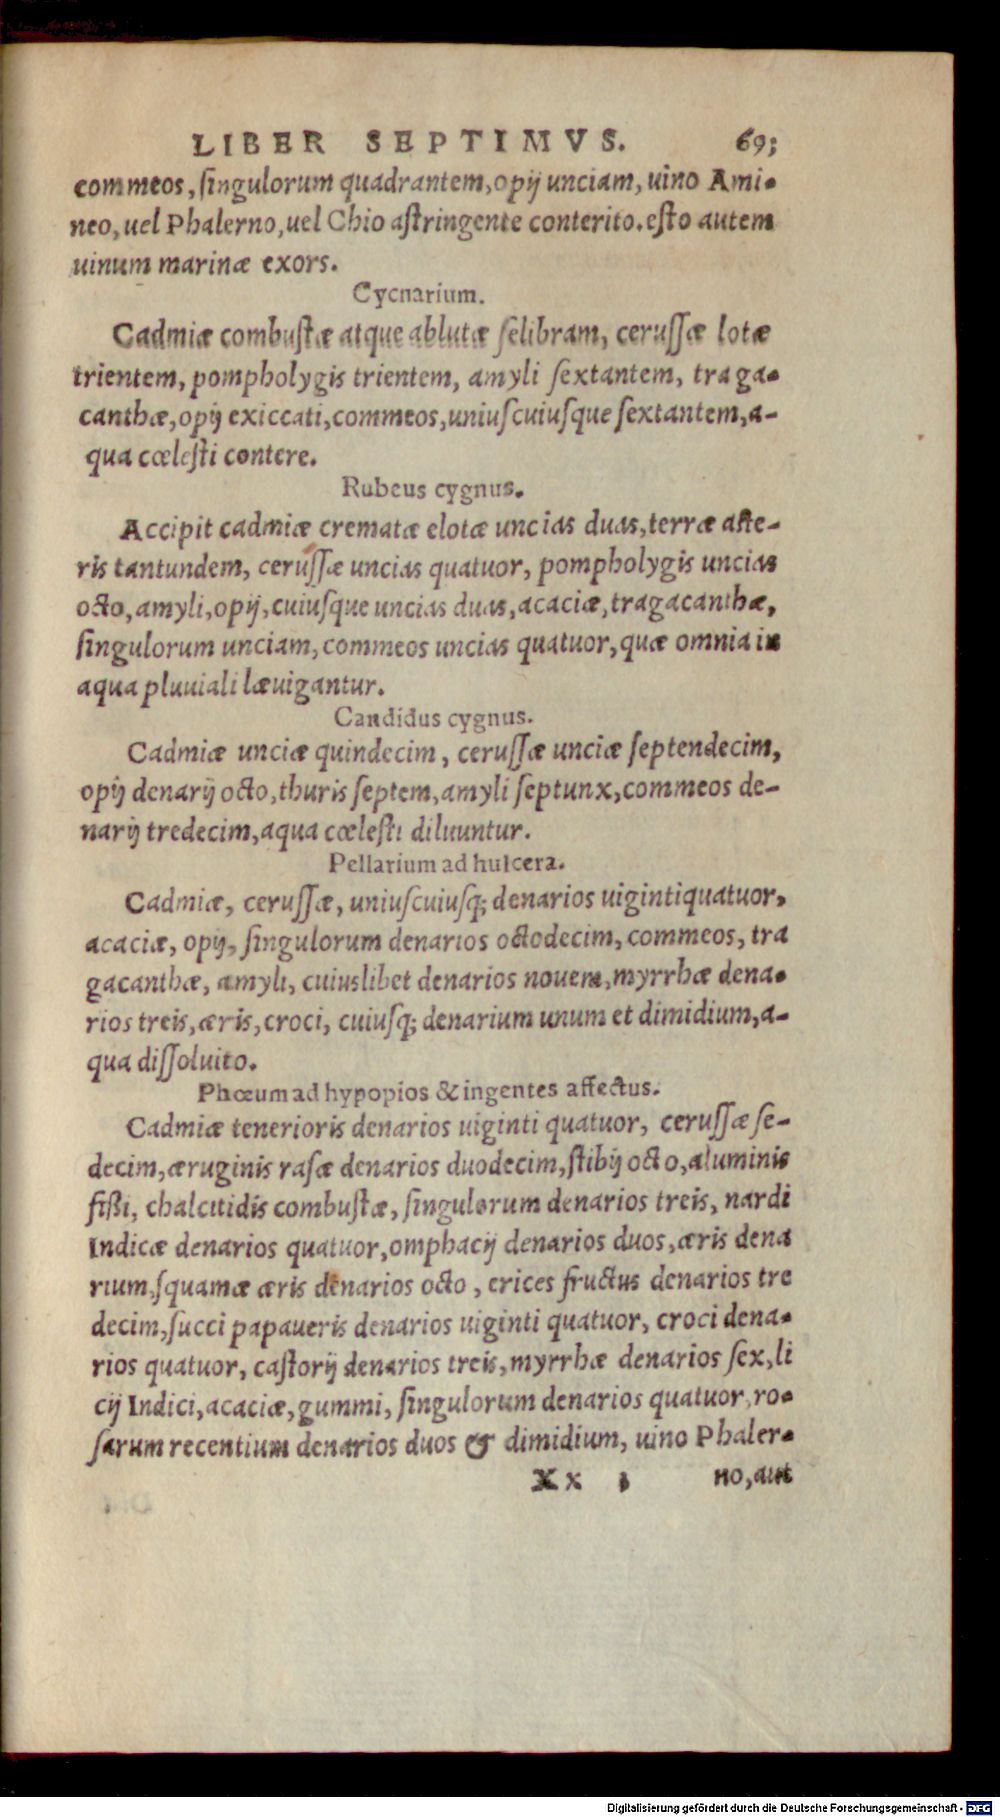 LIBER SEPTIMVS. 69;
commeos, singulorum quadrantem, opij unciam, uino Ami-
neo, uel Phalerno, uel Chio astringente conterito. esto autem
uinum marinæ exors.
Cycnarium.
Cadmiæ combustæ atque ablutæ selibram, cerussæ lotæ
trientem, pompholygis trientem, amyli sextantem, traga-
canthæ, opij exiccati, commeos, uniuscuiusque sextantem, a-
qua cœlesti contere.
Rubeus cygnus.
Accipit cadmiæ crematæ elotæ uncias duas, terræ aste-
ris tantundem, cerussæ uncias quatuor, pompholygis uncias
octo, amyli, opij, cuiusque uncias duas, acaciæ, tragacanthæ,
singulorum unciam, commeos uncias quatuor, quæ omnia in
aqua pluuiali læuigantur.
Candidus cygnus.
Cadmiæ unciæ quindecim, cerussæ unciæ septendecim,
opij denarij octo, thuris septem, amyli septunx, commeos de-
narij tredecim, aqua cœlesti diluuntur.
Pellarium ad hulcera.
Cadmiæ, cerussæ, uniuscuiusq; denarios uigintiquatuor,
acaciæ, opij, singulorum denarios octodecim, commeos, tra
gacanthæ, amyli, cuiuslibet denarios nouem, myrrhæ dena-
rios treis, æris, croci, cuiusq; denarium unum et dimidium, a-
qua dissoluito.
Phœum ad hypopios & ingentes affectus.
Cadmiæ tenerioris denarios uiginti quatuor, cerussæ se-
decim, æruginis rasæ denarios duodecim, stibij octo, aluminis
fissi, chalcitidis combustæ, singulorum denarios treis, nardi
Indicæ denarios quatuor, omphacij denarios duos, æris dena
rium, squamæ æris denarios octo, erices fructus denarios tre
decim, succi papaueris denarios uiginti quatuor, croci dena-
rios quatuor, castorij denarios treis, myrrhæ denarios sex, li
cij Indici, acaciæ, gummi, singulorum denarios quatuor, ro-
sarum recentium denarios duos & dimidium, uino Phaler-
Xx 1 no, aut
Digitalisierung gefördert durch die Deutsche Forschungsgemeinschaft - DFG